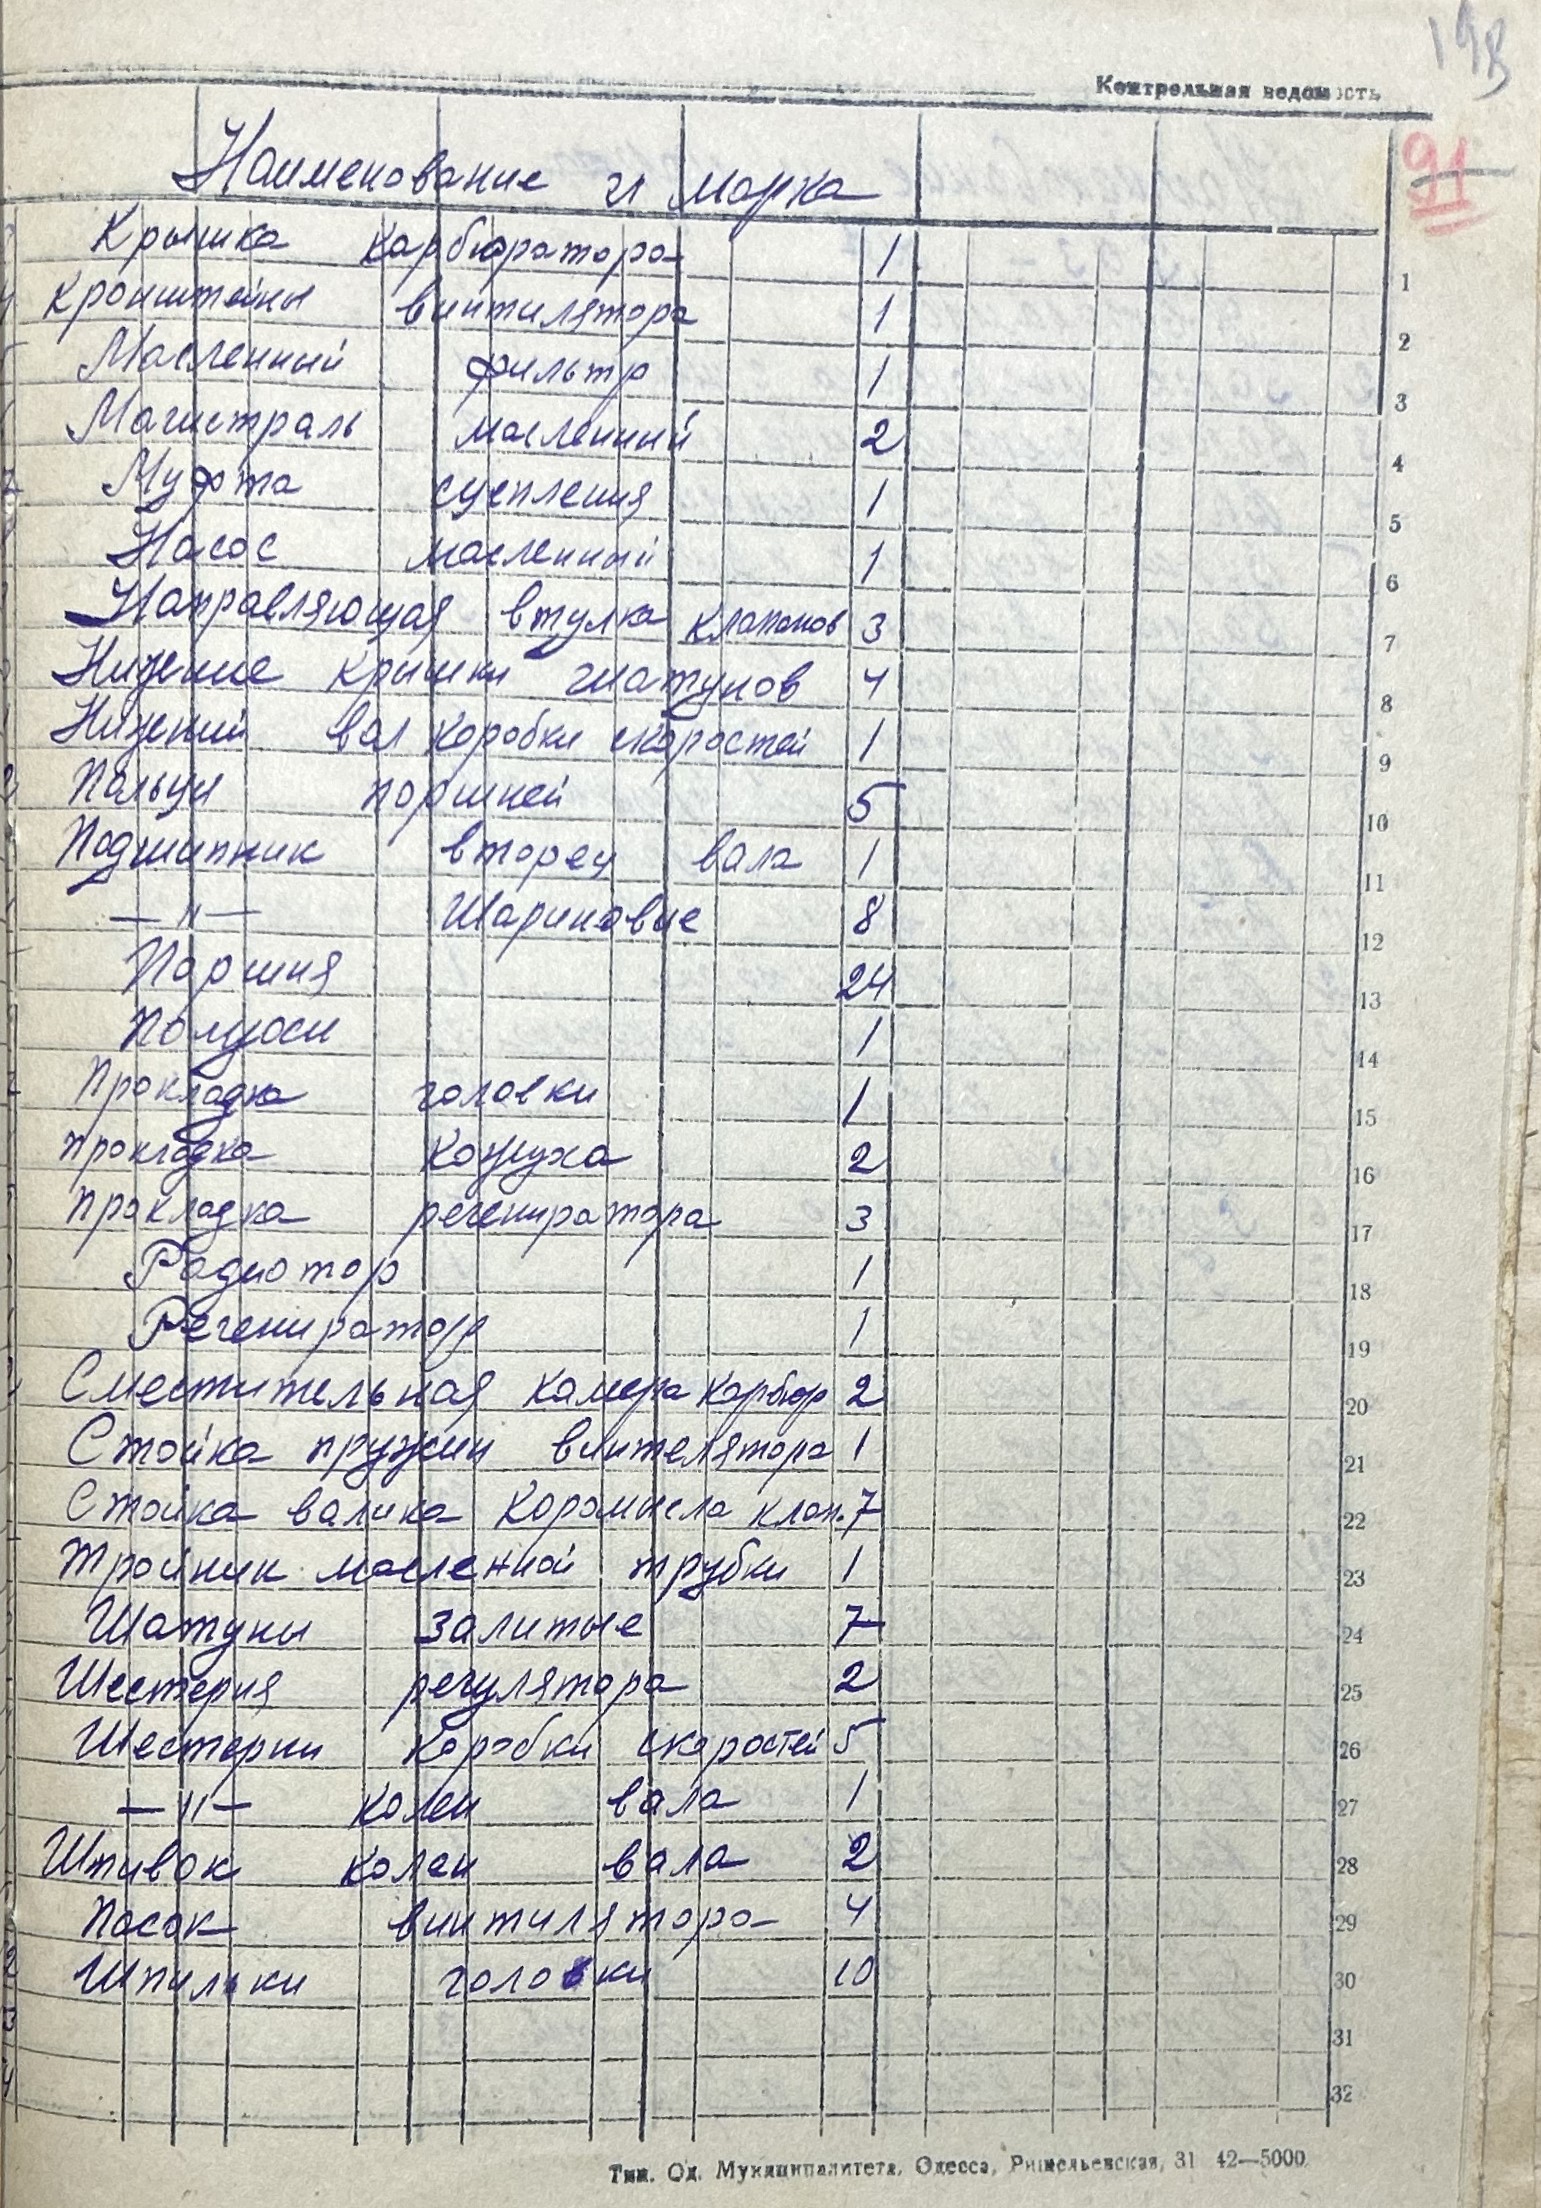 198
Контрольная ведомость
91
Наименование и марка
Крышка карбюратора 1 1
Кронштейны винтилятора 1 2
Масленный фильтр 1 3
Магистраль масленный 2 4
Муфта сцепления 1 5
Насос масленный 1 6
Направляющая втулка клапанов 3 7
Нижение крышки шатунов 4 8
Нижений вал коробки скоростей 1 9
Пальци поршней 5 10
Подшипник вторец вала 1 11
—"— Шариковые 8 12
Поршня 24 13
Полуоси 1 14
Прокладка головки 1 15
Прокладка кожуха 2 16
Прокладка регениратора 3 17
Радиотор 1 18
Регениратор 1 19
Сместительная камера карбюр 2 20
Стойка пружин винтелятора 1 21
Стойка валика коромысла клап. 7 22
Тройник масленной трубки 1 23
Шатуны залитые 7 24
Шестерня регулятора 2 25
Шестерни коробки скоростей 5 26
—"— колен вала 1 27
Шпивок колен вала 2 28
Пасок винтилятора 4 29
Шпильки головки 10 30
31
32
Тип. Од. Муниципалитета, Одесса, Ришельевская, 31 42—5000